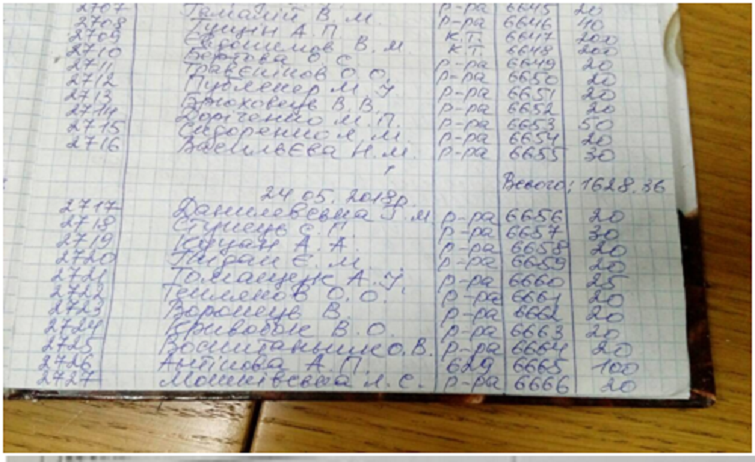 2707 Гамалій В. М. р-ра 6645 20
2708 Бущин А. П. р-ра 6646 40
2709 Євдокимов В. М. к.т. 6647 200
2710 С. к.т. 6648 200
2711 О. О. р-ра 6649 20
2712 М. р-ра 6650 20
2713 Брюховець В. В. р-ра 6651 20
2714 М. П. р-ра 6652 20
2715 Сидоренко Л. М. р-ра 6653 50
2716 Васильєва Н. М. р-ра 6654 20
р-ра 6655 30
Всього: 1628.36
24.05.2018р.
2717 Данилевська М. р-ра 6656 20
2718 Ступець Є. П. р-ра 6657 30
2719 Куцан А. А. р-ра 6658 20
2720 Гайдай Є. М. р-ра 6659 20
2721 Томащук А. р-ра 6660 25
2722 О. О. р-ра 6661 20
2723 Воронець В. р-ра 6662 20
2724 Кривобок В. О. р-ра 6663 20
2725 О. В. р-ра 6664 20
2726 Антіпова А. П. 629 6665 100
2727 Мошківська Л. Є. р-ра 6666 20